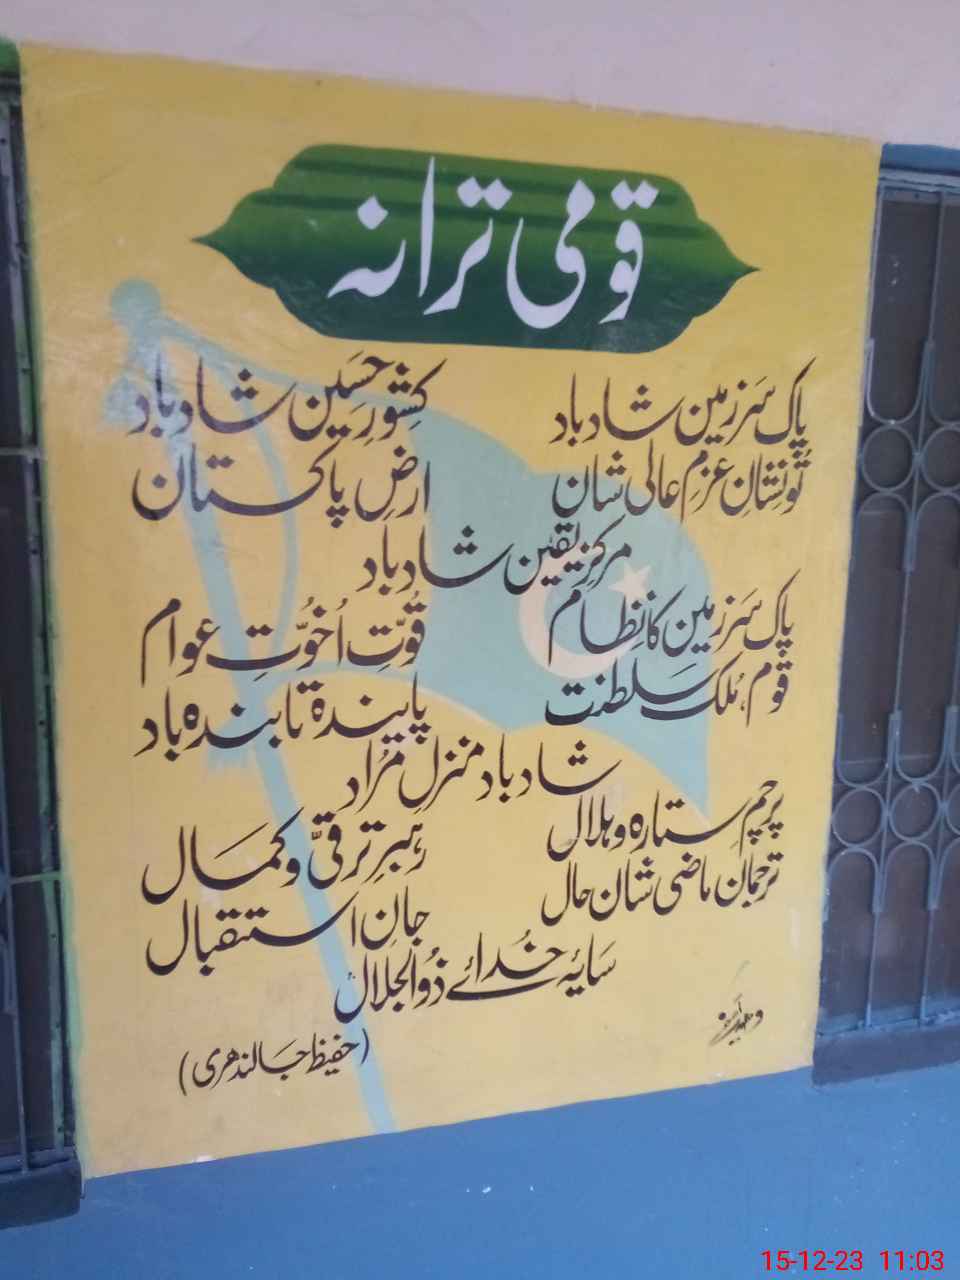 قومی ترانہ
پاک سَرزمین شاد باد کِشورِ حَسِین شاد باد
تُو نِشانِ عزمِ عالی شان ارضِ پاکستان
مرکزِ یقین شاد باد
پاک سَرزمین کا نِظام قُوّتِ اُخُوّتِ عوام
قوم، مُلک، سلطنت پایندہ تابندہ باد
شاد باد منزلِ مُراد
پرچم ستارہ و ہلال رہبرِ ترقّی و کمال
ترجمان ماضی شان حال جانِ استقبال
سَایۂ خُدائے ذُوالجلال
(حفیظ جالندھری)
15-12-23 11:03